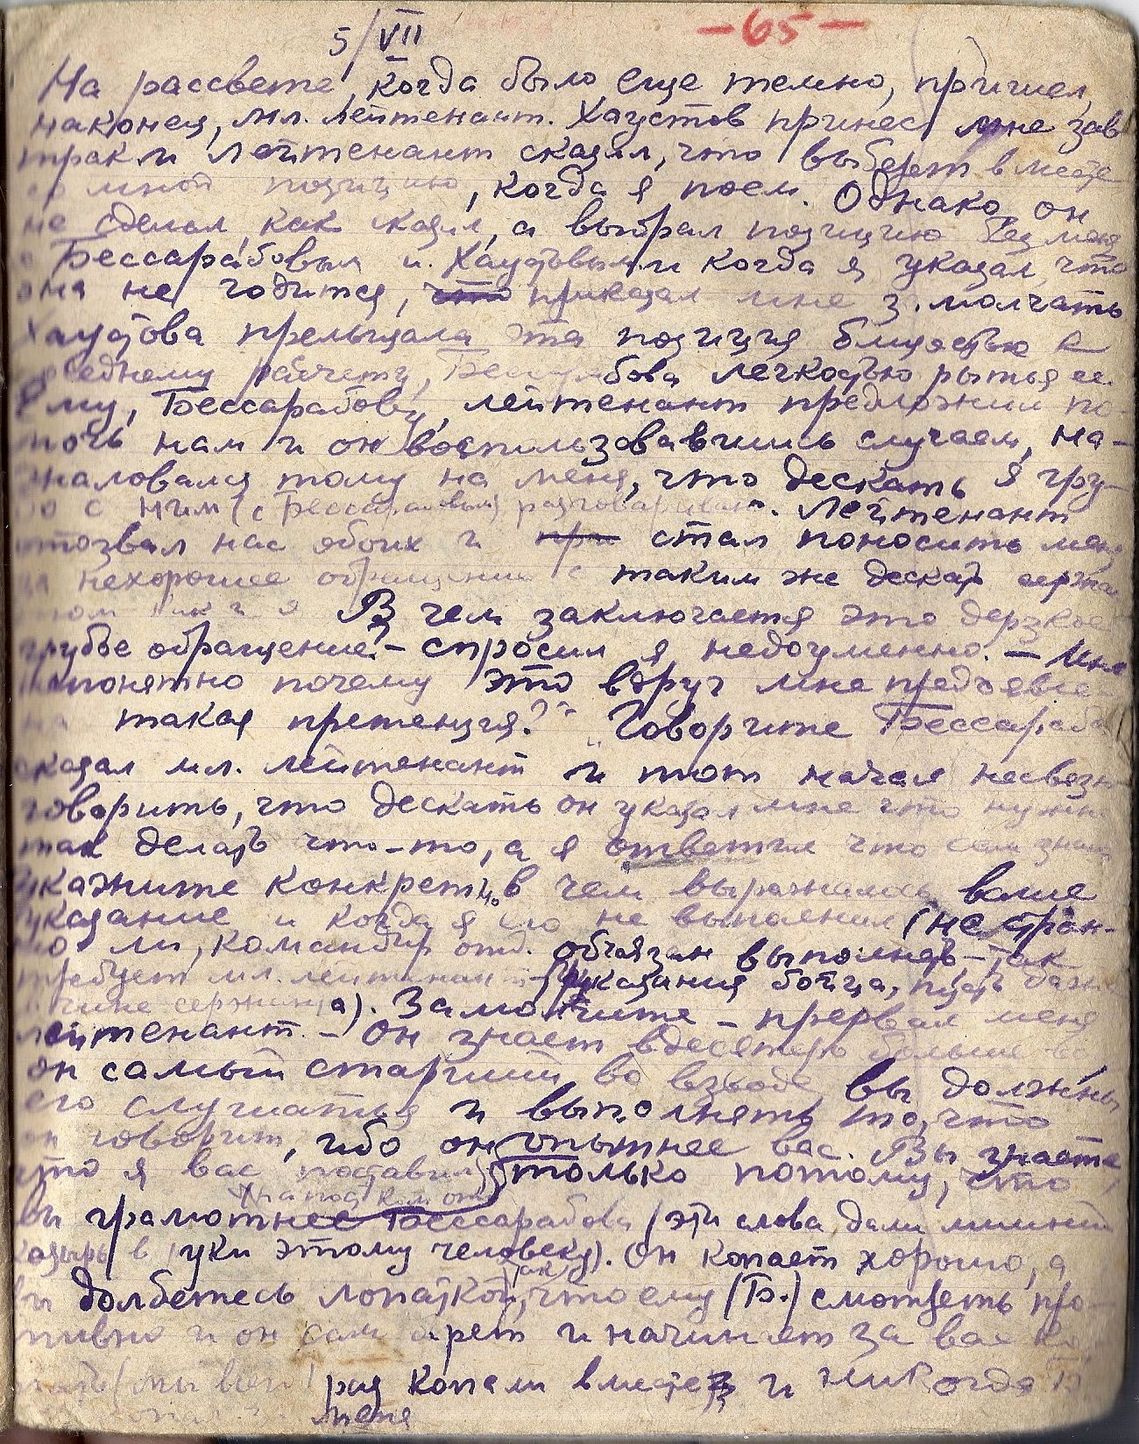 5/VII
-65-
На рассвете, когда было еще темно, пришел,
наконец, мл. лейтенант. Хаустов принес мне зав
трак и лейтенант сказал, что выберет вместе
со мной позицию, когда я поем. Однако он
не сделал, как сказал, а выбрал позицию без меня
с Бессарабовым и Хаустовым и когда я указал, что
она не годится, что приказал мне замолчать
Хаустова прельщала эта позиция близостью к
соседнему расчету, Бессарабова легкостью рытья ее.
Ему, Бессарабову, лейтенант предложил по-
мочь нам и он воспользовавшись случаем, на-
жаловался тому на меня, что дескать я гру-
бо с ним (с Бессарабовым) разговариваю. Лейтенант
отозвал нас обоих и при стал поносить меня
за нехорошее обращение с таким же дескать сержан
том как и я В чем заключается это дерзкое
грубое обращение? - спросил я недоуменно. - Мне
непонятно почему это вдруг мне предъявле-
на такая претенция?" "Говорите Бессарабов
сказал мл. лейтенант и тот начал несвязно
говорить, что дескать он указал мне что нужно
так делать что-то, а я ответил что сам знаю
Укажите конкретно в чем выражалось ваше
указание и когда я его не выполнил (не стран-
но ли, командир отд. обязан выполнять - так
требует мл. лейтенант - указания бойца, пусть даже
в чине сержанта). Замолчите - прервал меня
лейтенант - Он знает вдесятеро больше вас
он самый старший во взводе вы должны
его слушаться и выполнять то, что
он говорит, ибо он опытнее вас. Вы знаете
что я вас поставил только потому, что
на пост ком отд
вы грамотнее Бессарабова (эти слова дали лишний
козырь в руки этому человеку). Он копает хорошо, а
вы долбетесь лопаткой, так что ему (Б.) смотреть про-
тивно и он сам берет и начинает за вас ко
пать (мы всего раз копали вместе и никогда Б
меня